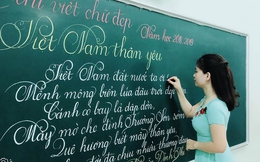 thi viết chữ đẹp
Năm học 2018-2019
Việt Nam thân yêu
Việt Nam đất nước ta ơi
Mênh mông biển lúa đâu trời đẹp hơn
Cánh cò bay lả dập dờn,
Mây mờ che đỉnh Trường Sơn sớm
Quê hương biết mấy thân yêu,
đời đã chịu nhiều thương